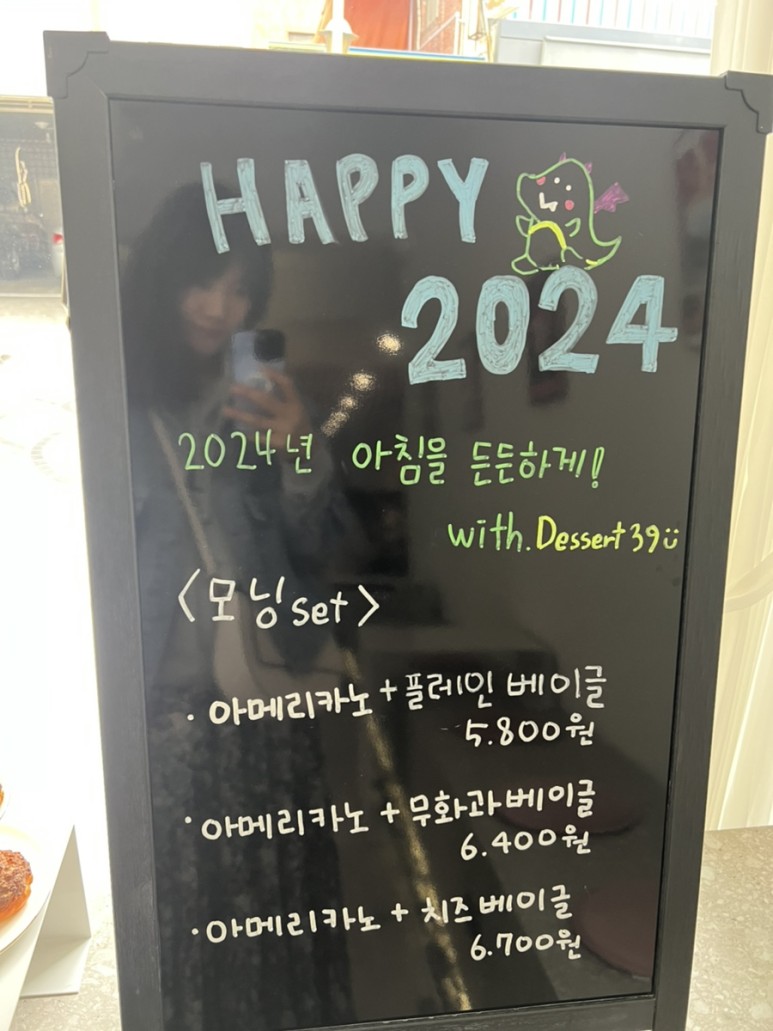 HAPPY
2024
2024년 아침을 든든하게!
with. Dessert39
<모닝set>
· 아메리카노+플레인 베이글
5.800원
· 아메리카노 + 무화과베이글
6.400원
· 아메리카노 + 치즈베이글
6.700원